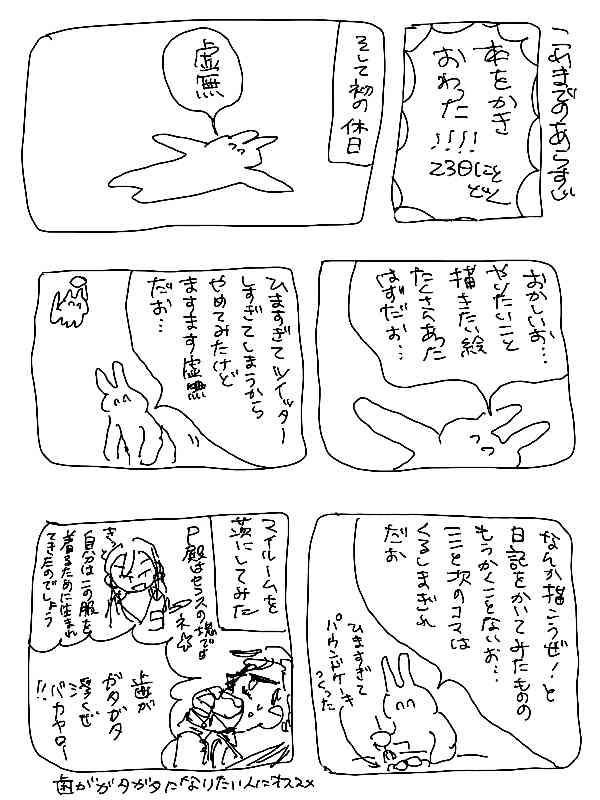 これまでのあらすじ
本をかき
おわった!!!!
230じこと
どく
そして初の休日
虚無
おかしいお…
やりたいこと
描きたい絵
たくさんあった
はずだお…
ひますぎてツイッター
しすぎてしまうから
やめてみたけど
ますます虚無
だお…
なんか描こうぜ!と
日記をかいてみたものの
もうかくことないお…
ニミと次のコマは
くるしまぎれ
だお
ひますぎて
パウンドケーキ
つくった
マイルームを
茨にしてみた
P殿はセンスの塊では
ネ
きっと
自分はこの服を
着るために生まれ
てきたのでしょう
歯が
ガタガタ
浮くぜ
バカヤロー
!!
歯がガタガタになりたい人にオススメ